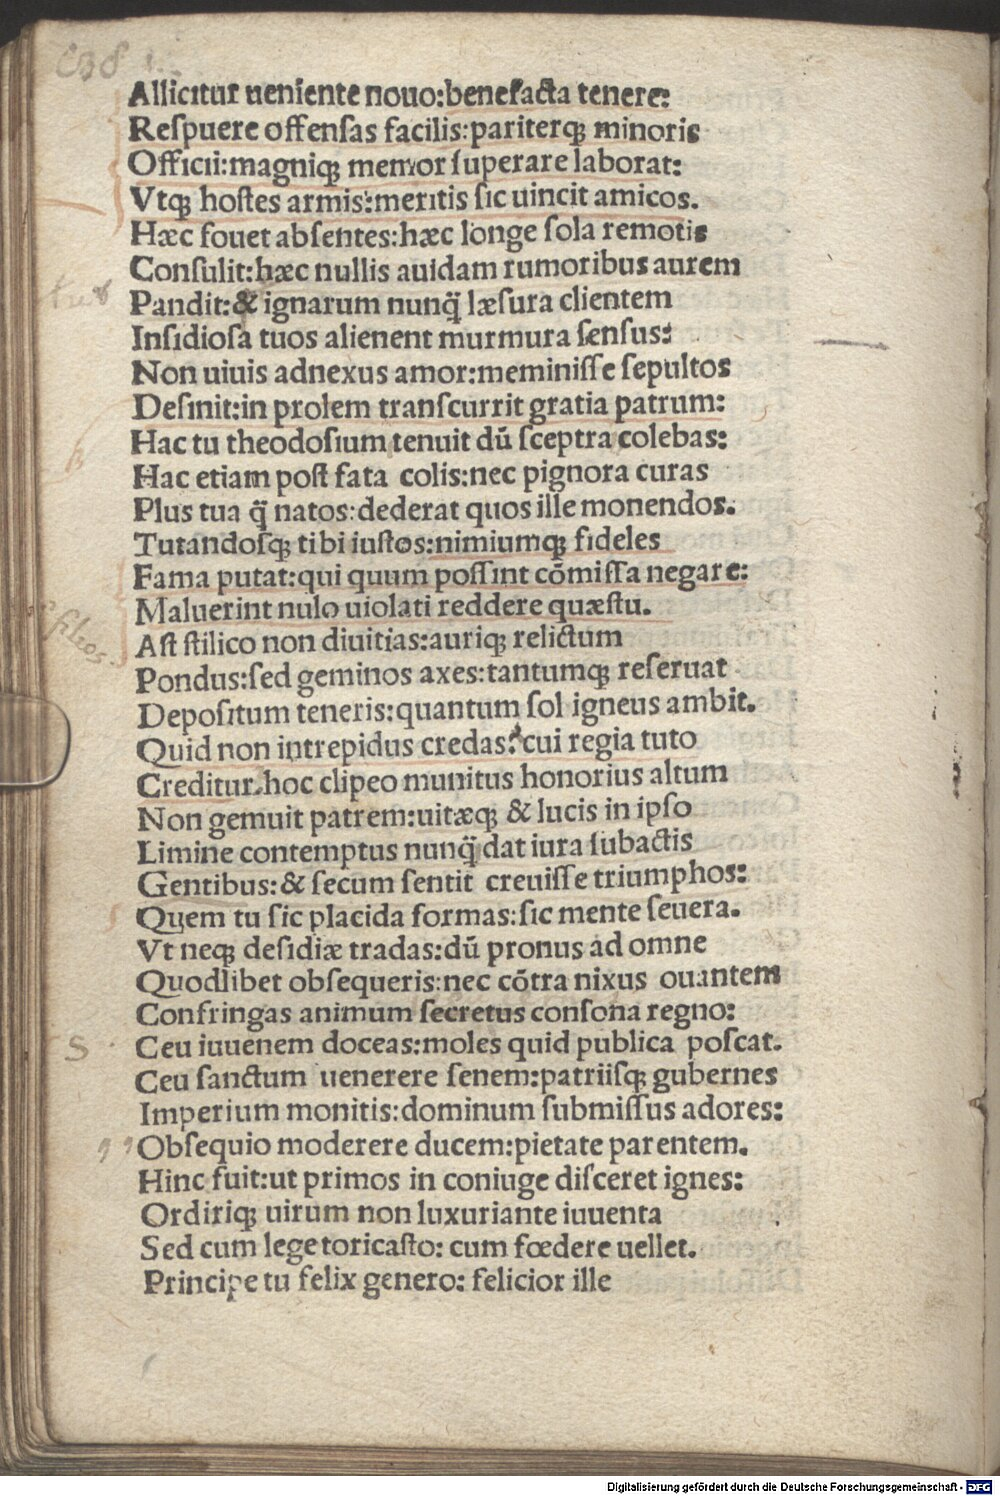 Allicitur ueniente nouo:benefacta tenere:
Respuere offensas facilis:pariterqꝫ minoris
Officii:magniqꝫ memor superare laborat:
Vtqꝫ hostes armis:meritis sic uincit amicos.
Hæc fouet absentes:hæc longe sola remotis
Consulit:hæc nullis auidam rumoribus aurem
Pandit:& ignarum nunq̈ læsura clientem
Insidiosa tuos alienent murmura sensus:
Non uiuis adnexus amor:meminisse sepultos
Desinit:in prolem transcurrit gratia patrum:
Hac tu theodosium tenuit dū sceptra colebas:
Hac etiam post fata colis:nec pignora curas
Plus tua q̈ natos:dederat quos ille monendos.
Tutandosqꝫ tibi iustos:nimiumqꝫ fideles
Fama putat:qui quum possint cōmissa negare:
Maluerint nulo uiolati reddere quæstu.
Ast stilico non diuitias:auriqꝫ relictum
Pondus:sed geminos axes:tantumqꝫ reseruat
Depositum teneris:quantum sol igneus ambit.
Quid non intrepidus credas:cui regia tuto
Creditur.hoc clipeo munitus honorius altum
Non gemuit patrem:uitæqꝫ & lucis in ipso
Limine contemptus nunq̈ dat iura subactis
Gentibus:& secum sentit creuisse triumphos:
Quem tu sic placida formas:sic mente seuera.
Vt neqꝫ desidiæ tradas:dū pronus ad omne
Quodlibet obsequeris:nec cōtra nixus ouantem
Confringas animum secretus consona regno:
Ceu iuuenem doceas:moles quid publica poscat.
Ceu sanctum uenerere senem:patriisqꝫ gubernes
Imperium monitis:dominum submissus adores:
Obsequio moderere ducem:pietate parentem.
Hinc fuit:ut primos in coniuge disceret ignes:
Ordiriqꝫ uirum non luxuriante iuuenta
Sed cum lege toricasto: cum fœdere uellet.
Principe tu felix genero: felicior ille
Digitalisierung gefördert durch die Deutsche Forschungsgemeinschaft - DFG